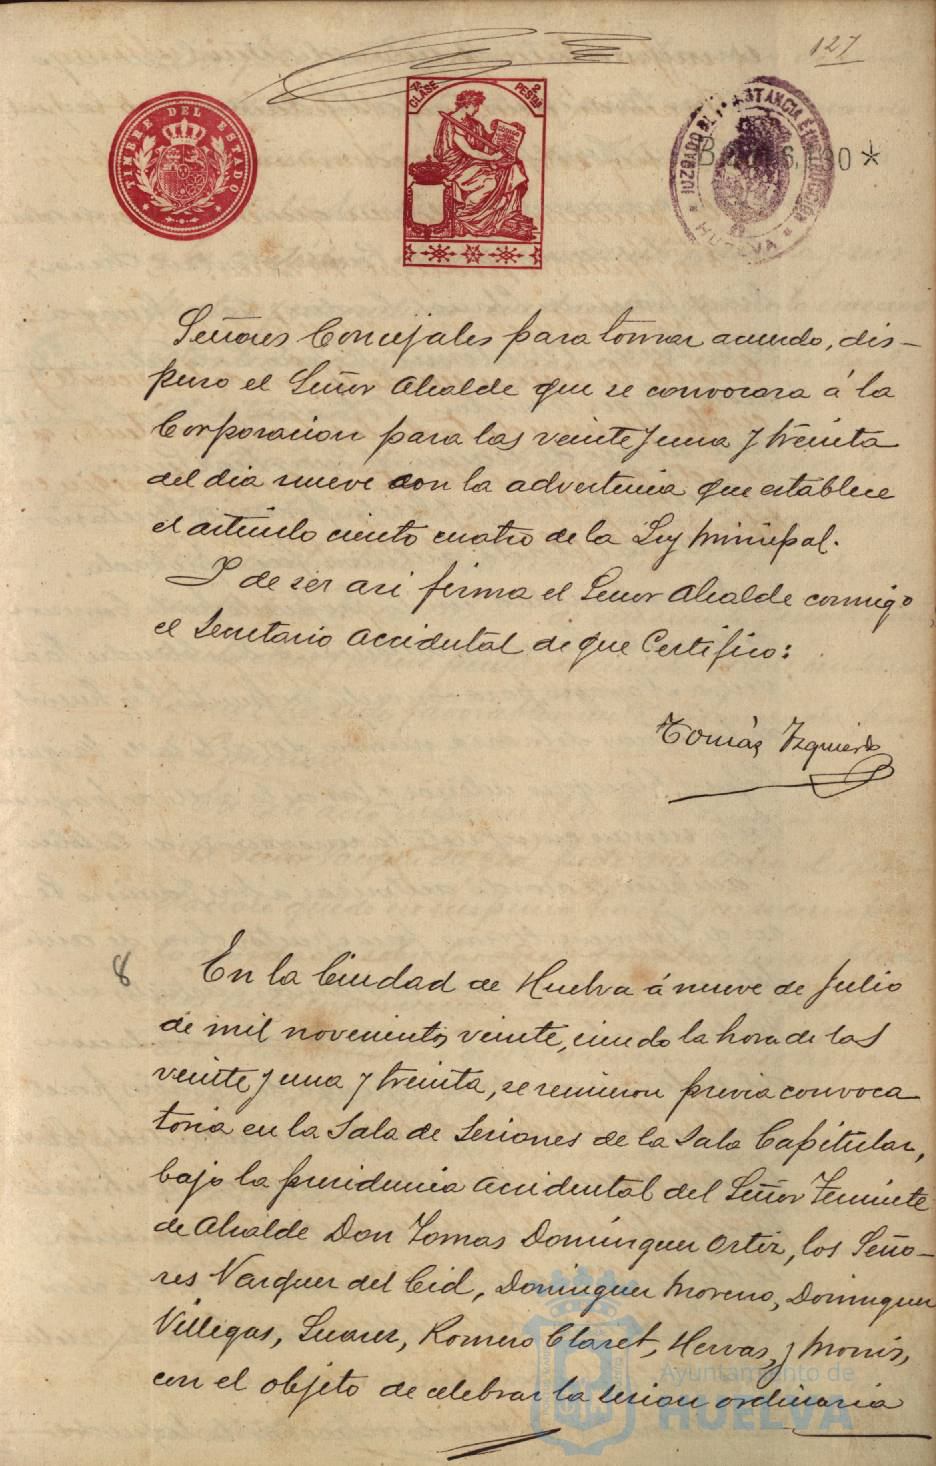 127
TIMBRE DEL ESTADO
7ª CLASE
2 PESTAS
JUZGADO DE 1ª INSTANCIA É INSTRUCCION
HUELVA
Señores Concejales para tomar acuerdo, dis-
puso el Señor Alcalde que se convocara á la
Corporacion para las veinte y una y treinta
del dia nueve con la advertencia que establece
el articulo ciento cuatro de la Ley Municipal.
Y de ser asi firma el Señor Alcalde conmigo
el Secretario Accidental de que Certifico:
Tomás Izquierdo
8
En la Ciudad de Huelva á nueve de Julio
de mil novecientos veinte, siendo la hora de las
veinte y una y treinta, se reunieron previa convoca
toria en la Sala de Sesiones de la Sala Capitular,
bajo la presidencia accidental del Señor Teniente
de Alcalde Don Tomas Dominguez Ortiz, los Seño-
res Vazquez del Cid, Dominguez Moreno, Dominguez
Villegas, Suarez, Romero Claret, Hervas, y Monis,
con el objeto de celebrar la sesion ordinaria
Ayuntamiento de
HUELVA